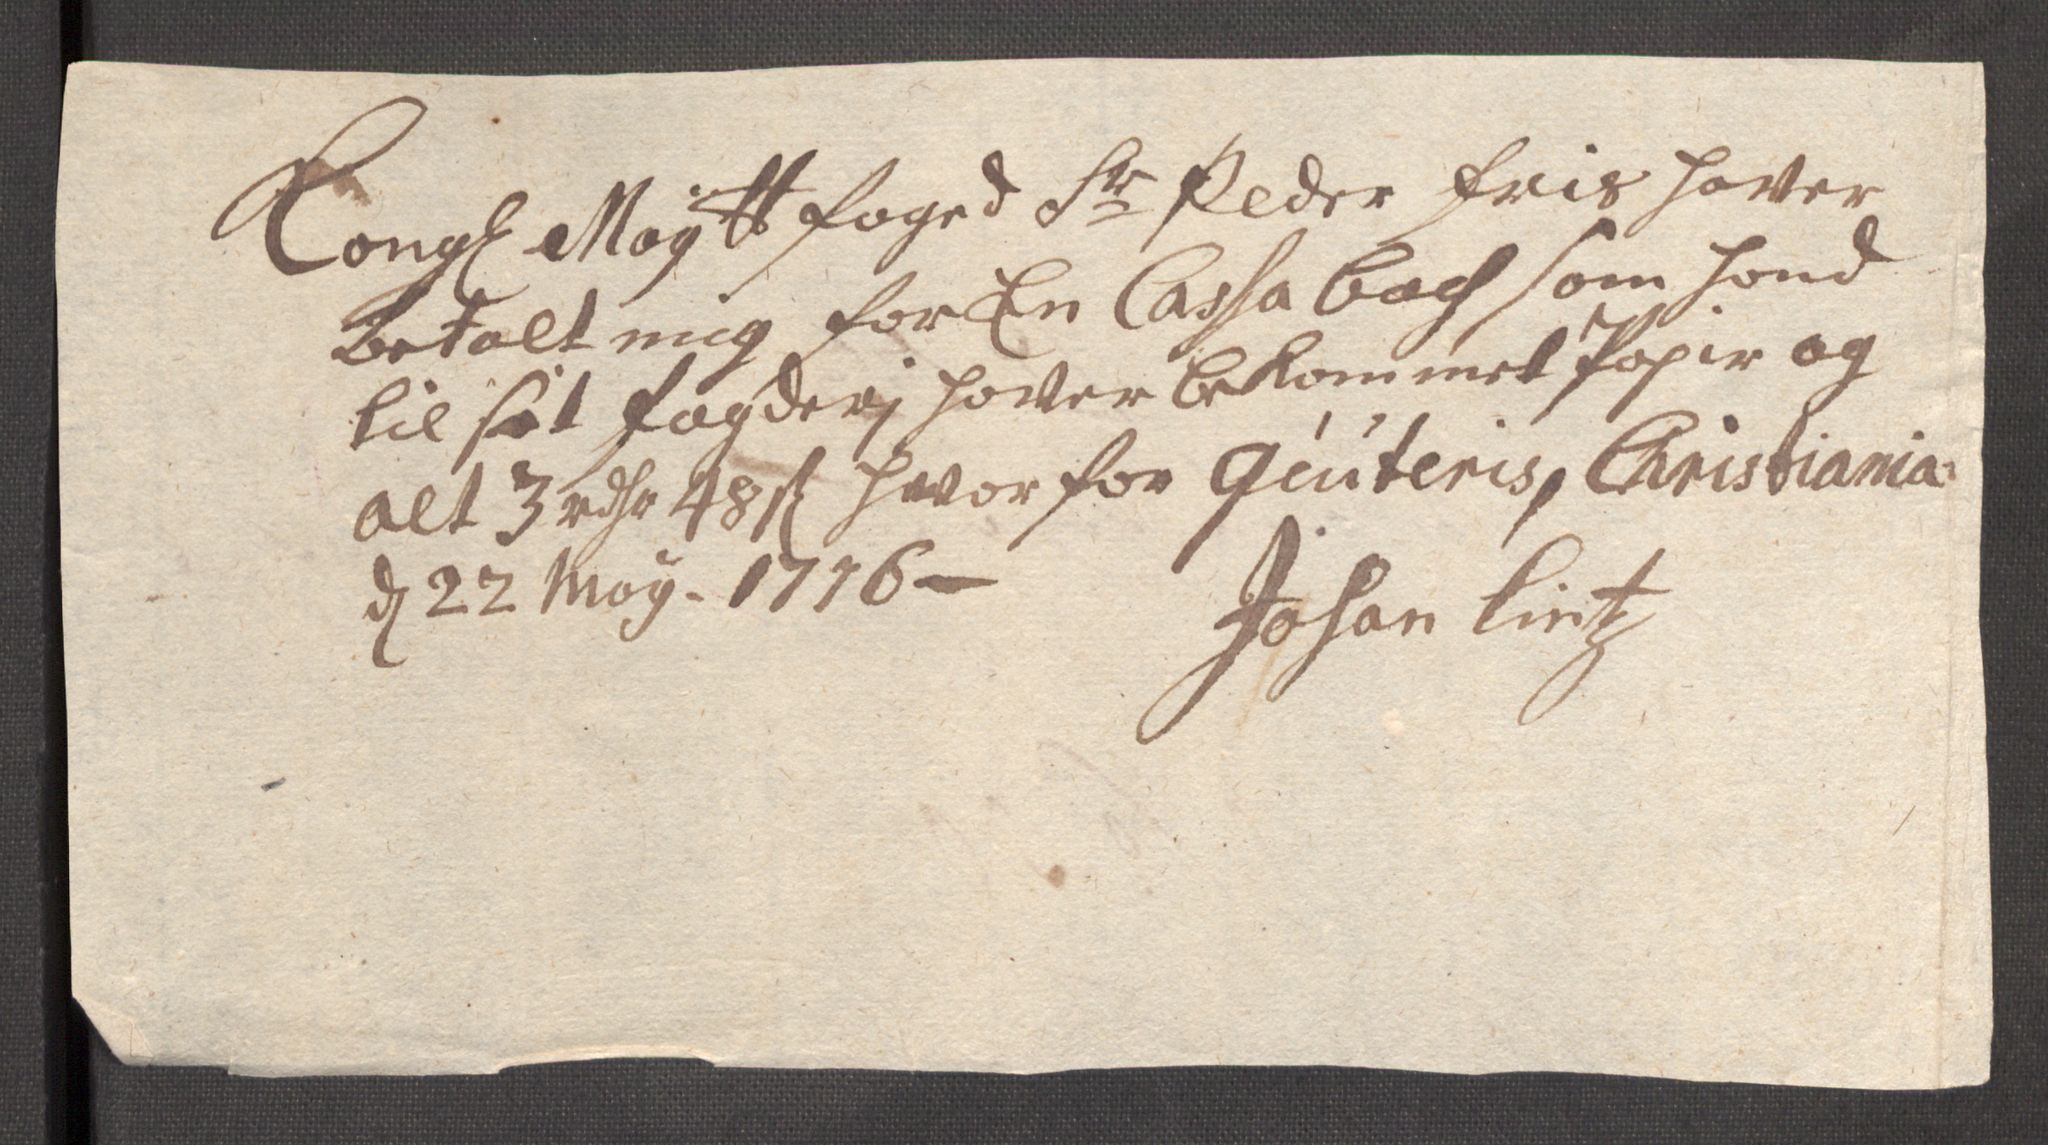 Congl Maytt foged Sr Peder friis haver
betalt mig for En Cassa bog som hand
til sit fogderj haver bekommet Papir og
alt 3 rdr 48 s hvor for qviteris, Christiania
d 22 May. 1716
Johan Lintz